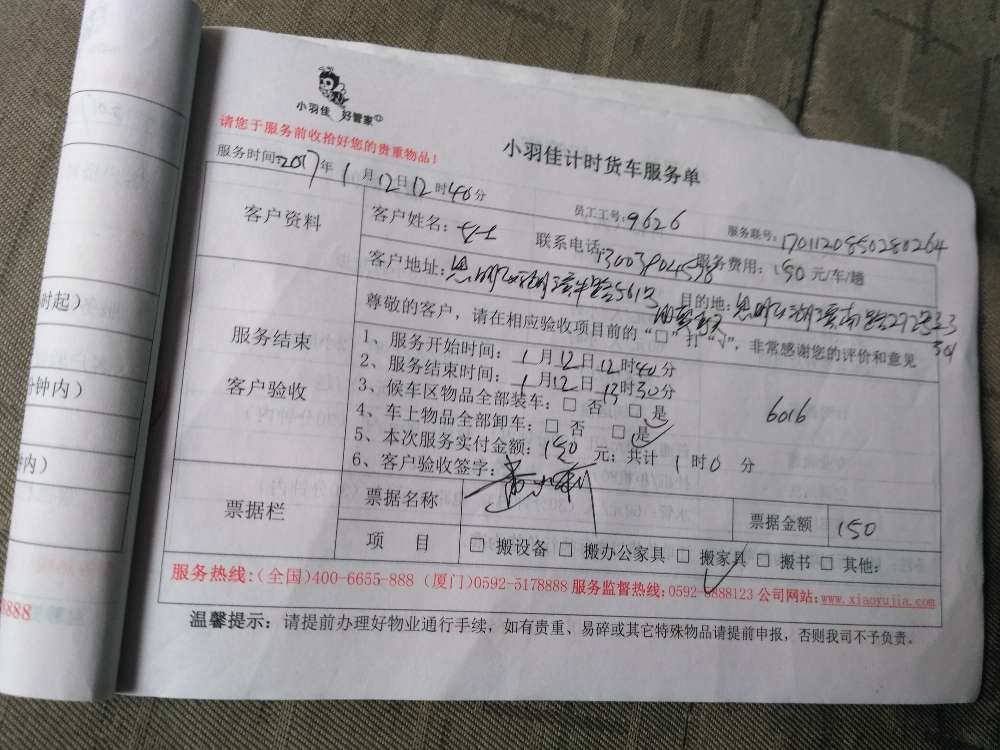 小羽佳 好管家
请您于服务前收拾好您的贵重物品！
小羽佳计时货车服务单
服务时间:2017年1月12日12时46分 员工工号:9626 服务联号:1701120850280264
客户资料 客户姓名: 联系电话:13003904578 服务费用:150元/车/趟
客户地址:思明区湖滨 目的地:思明区湖滨南路
尊敬的客户，请在相应验收项目前的“□”打“√”，非常感谢您的评价和意见
服务结束
客户验收
1、服务开始时间: 1月12日12时40分
2、服务结束时间: 1月12日13时30分
3、候车区物品全部装车:□ 否 □ 是
4、车上物品全部卸车:□ 否 □ 是
6016
5、本次服务实付金额:150元;共计1时0分
6、客户验收签字:
票据栏 票据名称 票据金额 150
项 目 □ 搬设备 □ 搬办公家具 □ 搬家具 □ 搬书 □ 其他:
服务热线:(全国)400-6655-888 (厦门)0592-5178888 服务监督热线:0592-8888123 公司网站:www.xiaoyujia.com
温馨提示: 请提前办理好物业通行手续，如有贵重、易碎或其它特殊物品请提前申报，否则我司不予负责。
时起）
分钟内）
内）
888